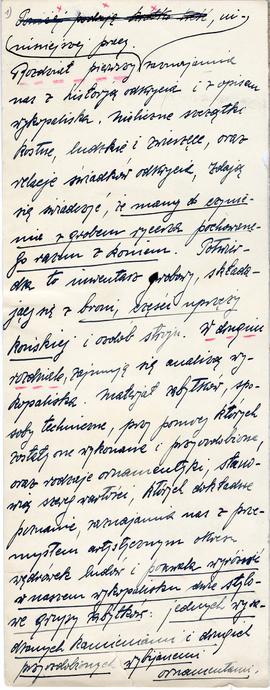 1) Poniżej podaję krótką treść ni-
niniejszej pracy
Rozdział pierwszy zaznajamia
nas z historją odkrycia i z opisem
wykopaliska, nieliczne szczątki
kostne, ludzkie i zwierzęce, oraz
relacje świadków odkrycia, zdają
się świadczyć, że mamy do czynie-
nia z grobem rycerza pochowane-
go razem z koniem. Potwier-
dza to inwentarz grobowy, składa-
jący się z broni, części uprzęży
końskiej i ozdób stroju. W drugim
rozdziale, zajmuję się analizą wy-
kopaliska. Materjał zabytków, spo-
soby techniczne, przy pomocy których
zostały one wykonane i przyozdobione
oraz rodzaje ornamentyki, stano-
wią szereg wartości, których dokładne
poznanie, zaznajamia nas z prze-
mysłem artystycznym okresu
wędrówek ludów i pozwala wyróżnić
w naszem wykopalisku dwie stylo-
we grupy zabytków: jednych wysa-
dzanych kamieniami i drugich
przyozdobionych wybijanemi
ornamentami.